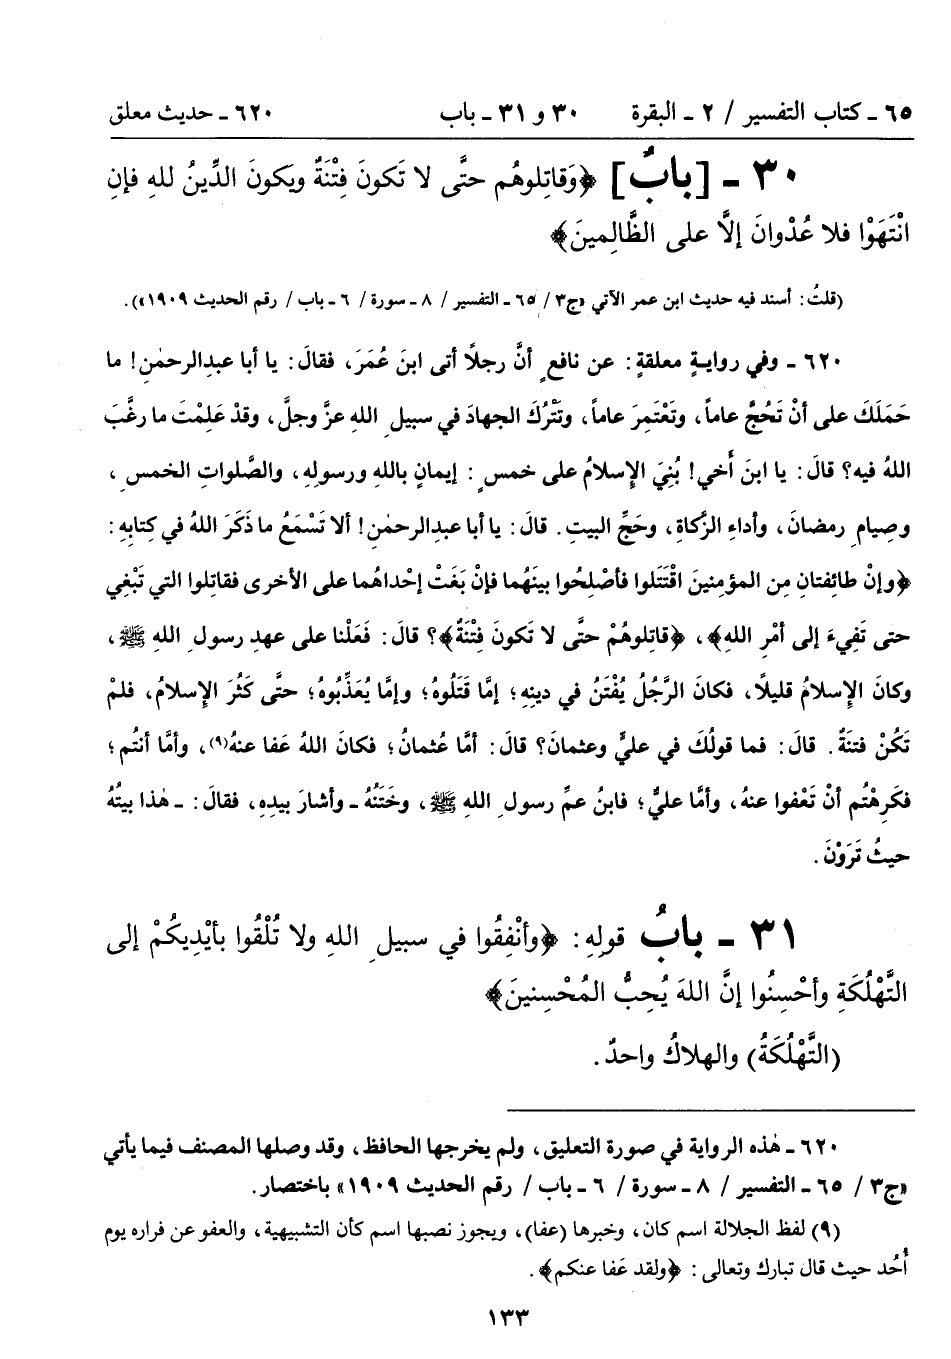 ٦٥ ـ كتاب التفسير / ٢ ـ البقرة ٣٠ و ٣١ ـ باب ٦٢٠ ـ حديث معلق
٣٠ ـ [بابٌ] ﴿وَقاتِلوهُم حتَّى لا تَكونَ فِتْنَةٌ ويَكونَ الدِّينُ للهِ فإنِ
انْتَهَوْا فلا عُدْوانَ إلَّا على الظَّالِمينَ﴾
(قلتُ: أسند فيه حديث ابن عمر الآتي «ج٣ / ٦٥ ـ التفسير / ٨ ـ سورة / ٦ ـ باب / رقم الحديث ١٩٠٩»).
٦٢٠ ـ وفي روايةٍ معلقةٍ: عن نافعٍ أنَّ رجلًا أتى ابنَ عُمَرَ، فقالَ: يا أبا عبدِالرحمٰنِ! ما
حَمَلَكَ على أنْ تَحُجَّ عاماً، وتَعْتَمِرَ عاماً، وتَتْرُكَ الجهادَ في سبيلِ اللهِ عزَّ وجلَّ، وقدْ عَلِمْتَ ما رغَّبَ
اللهُ فيه؟ قالَ: يا ابنَ أَخي! بُنِيَ الإِسلامُ على خمسٍ: إيمانٍ باللهِ ورسولِهِ، والصَّلواتِ الخمسِ،
وصيامِ رمضانَ، وأداءِ الزَّكاةِ، وحَجِّ البيتِ. قالَ: يا أبا عبدِالرحمٰنِ! ألا تَسْمَعُ ما ذَكَرَ اللهُ في كِتابِهِ:
﴿وإنْ طائِفتانِ مِن المؤمِنينَ اقْتَتَلوا فأصْلِحُوا بينَهُما فإنْ بَغَتْ إحْداهُما على الأخرى فقاتِلوا التي تَبْغِي
حتى تَفِيءَ إلى أمْرِ اللهِ﴾، ﴿قاتِلوهُمْ حتَّى لا تَكونَ فِتْنَةٌ﴾؟ قالَ: فَعَلْنا على عهدِ رسولِ اللهِ ﷺ،
وكانَ الإِسلامُ قليلًا، فكانَ الرَّجُلُ يُفْتَنُ في دينِهِ؛ إمَّا قَتَلُوهُ؛ وإما يُعَذِّبُوهُ؛ حتَّى كَثُرَ الإِسلامُ، فلمْ
تَكُنْ فتنَةٌ. قالَ: فما قولُكَ في عليٍّ وعثمانَ؟ قالَ: أمَّا عُثمانُ؛ فكانَ اللهُ عَفا عنهُ(٩)، وأمَّا أنتُم؛
فكَرِهْتُم أنْ تَعْفوا عنهُ، وأمَّا عليٌّ؛ فابنُ عمِّ رسولِ اللهِ ﷺ، وخَتَنُهُ ـ وأشارَ بيدِهِ، فقالَ: ـ هٰذا بيتُهُ
حيثُ تَرَوْنَ.
٣١ ـ بابُ قولِهِ: ﴿وأنْفِقُوا في سبيلِ اللهِ ولا تُلْقُوا بأيْدِيكُمْ إلى
التَّهْلُكَةِ وأحْسِنُوا إنَّ اللهَ يُحِبُّ المُحْسِنينَ﴾
(التَّهْلُكَةُ) والهلاكُ واحدٌ.
٦٢٠ ـ هٰذه الرواية في صورة التعليق، ولم يخرجها الحافظ، وقد وصلها المصنف فيما يأتي
«ج٣ / ٦٥ ـ التفسير / ٨ ـ سورة / ٦ ـ باب / رقم الحديث ١٩٠٩» باختصار.
(٩) لفظ الجلالة اسم كان، وخبرها (عفا)، ويجوز نصبها اسم كأن التشبيهية، والعفو عن فراره يوم
أُحُد حيث قال تبارك وتعالى: ﴿ولقد عَفا عنكم﴾.
١٣٣